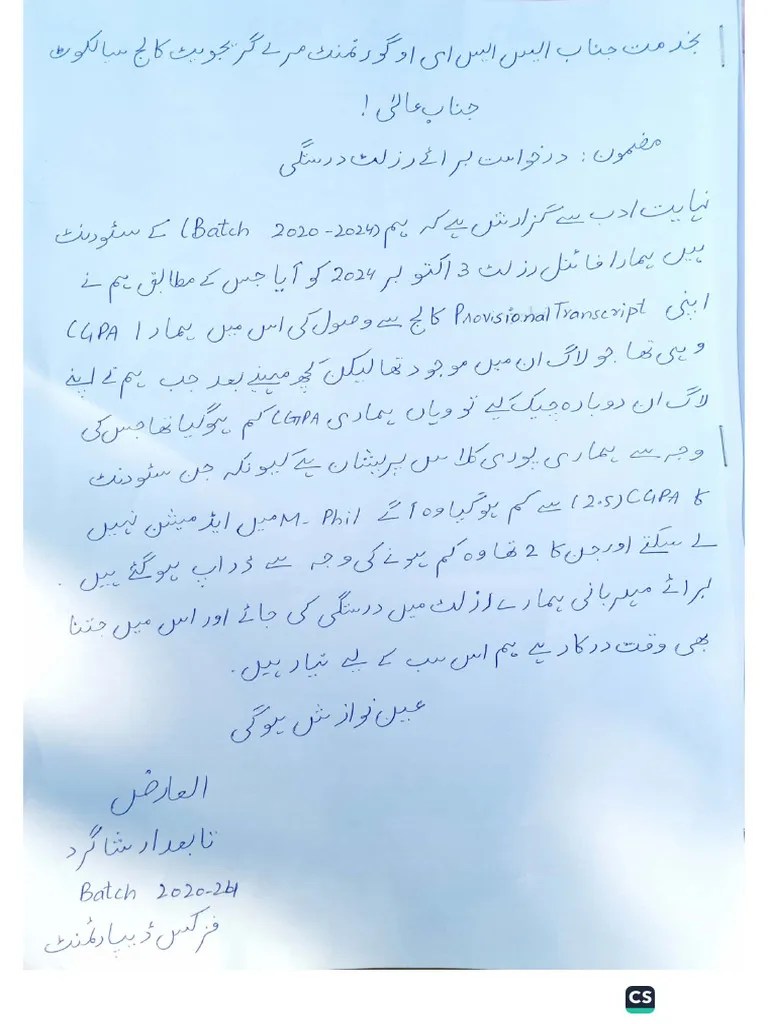 بخدمت جناب ایس ایس ای او گورنمنٹ مرے گریجویٹ کالج سیالکوٹ
جناب عالٰی !
مضمون : درخواست برائے رزلٹ درستگی
نہایت ادب سے گزارش ہے کہ ہم (Batch 2020-2024) کے سٹوڈنٹ
ہیں ہمارا فائنل رزلٹ 3 اکتوبر 2024 کو آیا جس کے مطابق ہم نے
اپنی Provisional Transcript کالج سے وصول کی اس میں ہمارا CGPA
وہی تھا جو لاگ ان میں موجود تھا لیکن کچھ مہینے بعد جب ہم نے اپنے
لاگ ان دوبارہ چیک کیے تو وہاں ہماری CGPA کم ہوگیا تھا جس کی
وجہ سے ہماری پوری کلاس پریشان ہے کیونکہ جن سٹوڈنٹ
کا CGPA (2.5) سے کم ہوگیا وہ آگے M-Phil میں ایڈمیشن نہیں
لے سکتے اور جن کا 2 تھا وہ کم ہونے کی وجہ سے ڈراپ ہوگئے ہیں .
برائے مہربانی ہمارے رزلٹ میں درستگی کی جائے اور اس میں جتنا
بھی وقت درکار ہے ہم اس سب کے لیے تیار ہیں .
عین نوازش ہوگی
العارض
تابعدار شاگرد
Batch 2020-24
فزکس ڈیپارٹمنٹ
CS